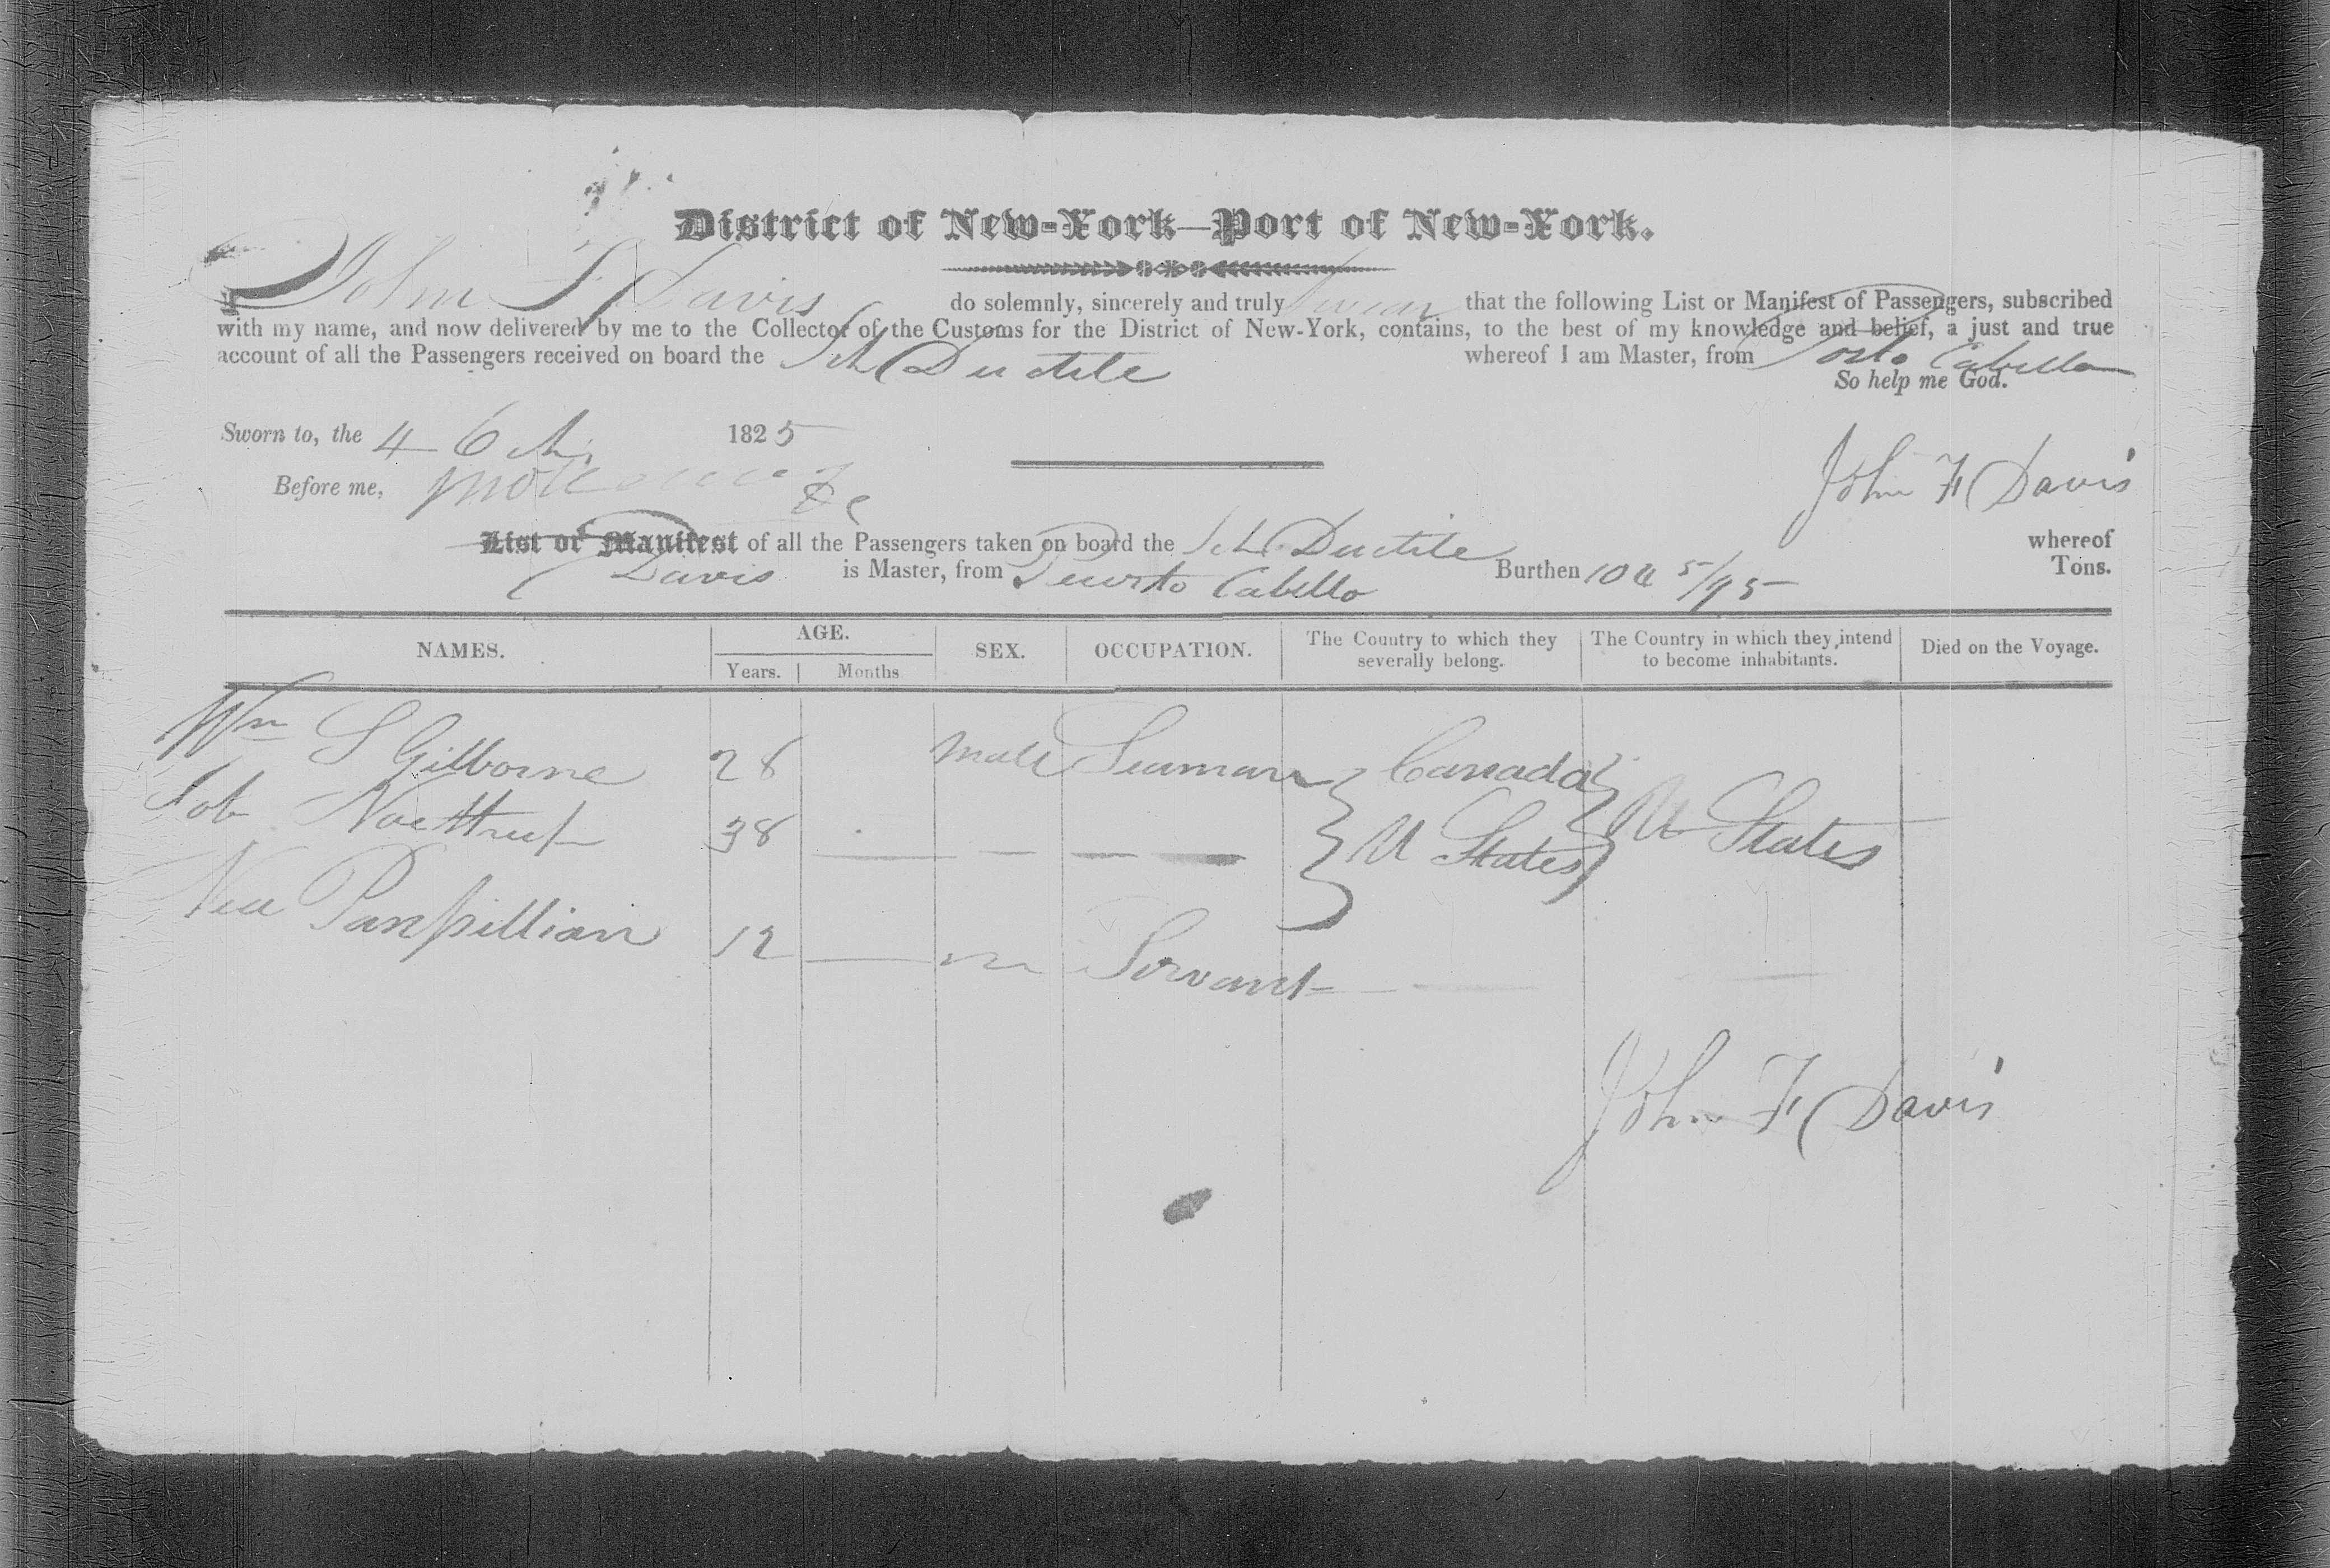 District of New-York—Port of New-York.
I John F Davis do solemnly, sincerely and truly swear that the following List or Manifest of Passengers, subscribed
with my name, and now delivered by me to the Collector of the Customs for the District of New-York, contains, to the best of my knowledge and belief, a just and true
account of all the Passengers received on board the Sch Ductile whereof I am Master, from Porto Cabello
So help me God.
Sworn to, the 4 1825
Before me,
John F Davis
List or Manifest of all the Passengers taken on board the Sch Ductile whereof
Davis is Master, from Puerto Cabello Burthen 104 5/95 Tons.
NAMES. AGE. SEX. OCCUPATION. The Country to which they severally belong. The Country in which they intend to become inhabitants. Died on the Voyage.
Years. Months
Wm S Gilborne 28 Male Seaman Canada
38 U States U States
12 Servant
John F Davis